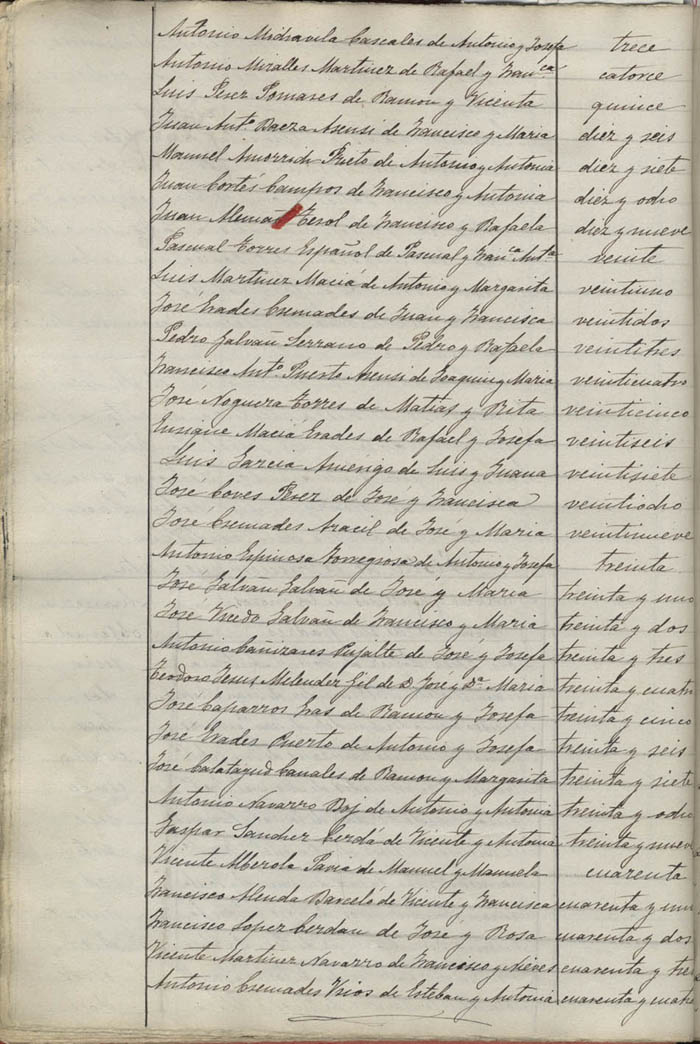 Antonio Midravila Cascales de Antonio y Josefa trece
Antonio Miralles Martinez de Rafael y Fran.ca catorce
Luis Perez Pomares de Ramon y Vicenta quince
Juan Ant.o Baeza Asensi de Francisco y Maria diez y seis
Manuel Prieto de Antonio y Antonia diez y siete
Juan Cortés Campos de Francisco y Antonia diez y ocho
Juan Alemañ Terol de Francisco y Rafaela diez y nueve
Pascual Torres Español de Pascual y Fran.ca Ant.a veinte
Luis Martinez Maciá de Antonio y Margarita veintiuno
José Erades Cremades de Juan y Francisca veintidos
Pedro Galvañ Serrano de Pedro y Rafaela veintitres
Francisco Ant.o Puerto Asensi de Joaquin y Maria veinticuatro
José Noguera Torres de Matías y Rita veinticinco
Enrique Maciá Erades de Rafael y Josefa veintiseis
Luis Garcia Amérigo de Luis y Juana veintisiete
José Coves Perez de Jose y Francisca veintiocho
José Cremades Aracil de José y Maria veintinueve
Antonio Espinosa Torregrosa de Antonio y Josefa treinta
José Galvañ Galvañ de José y Maria treinta y uno
José Vicedo Galvañ de Francisco y Maria treinta y dos
Antonio Cañizares Pujalte de José y Josefa treinta y tres
Teodoro Jesus Melendez Gil de D. José y D.a Maria treinta y cuatro
José Caparros Gras de Ramon y Josefa treinta y cinco
José Erades Puerto de Antonio y Josefa treinta y seis
José Calatayud Canales de Ramon y Margarita treinta y siete
Antonio Navarro Boj de Antonio y Antonia treinta y ocho
Gaspar Sanchez Cerdá de Vicente y Antonia treinta y nueve
Vicente Alberola Pavia de Manuel y Manuela cuarenta
Francisco Alenda Barceló de Vicente y Francisca cuarenta y uno
Francisco Lopez Cerdan de José y Rosa cuarenta y dos
Vicente Martinez Navarro de Francisco y Nieves cuarenta y tres
Antonio Cremades de Esteban y Antonia cuarenta y cuatro